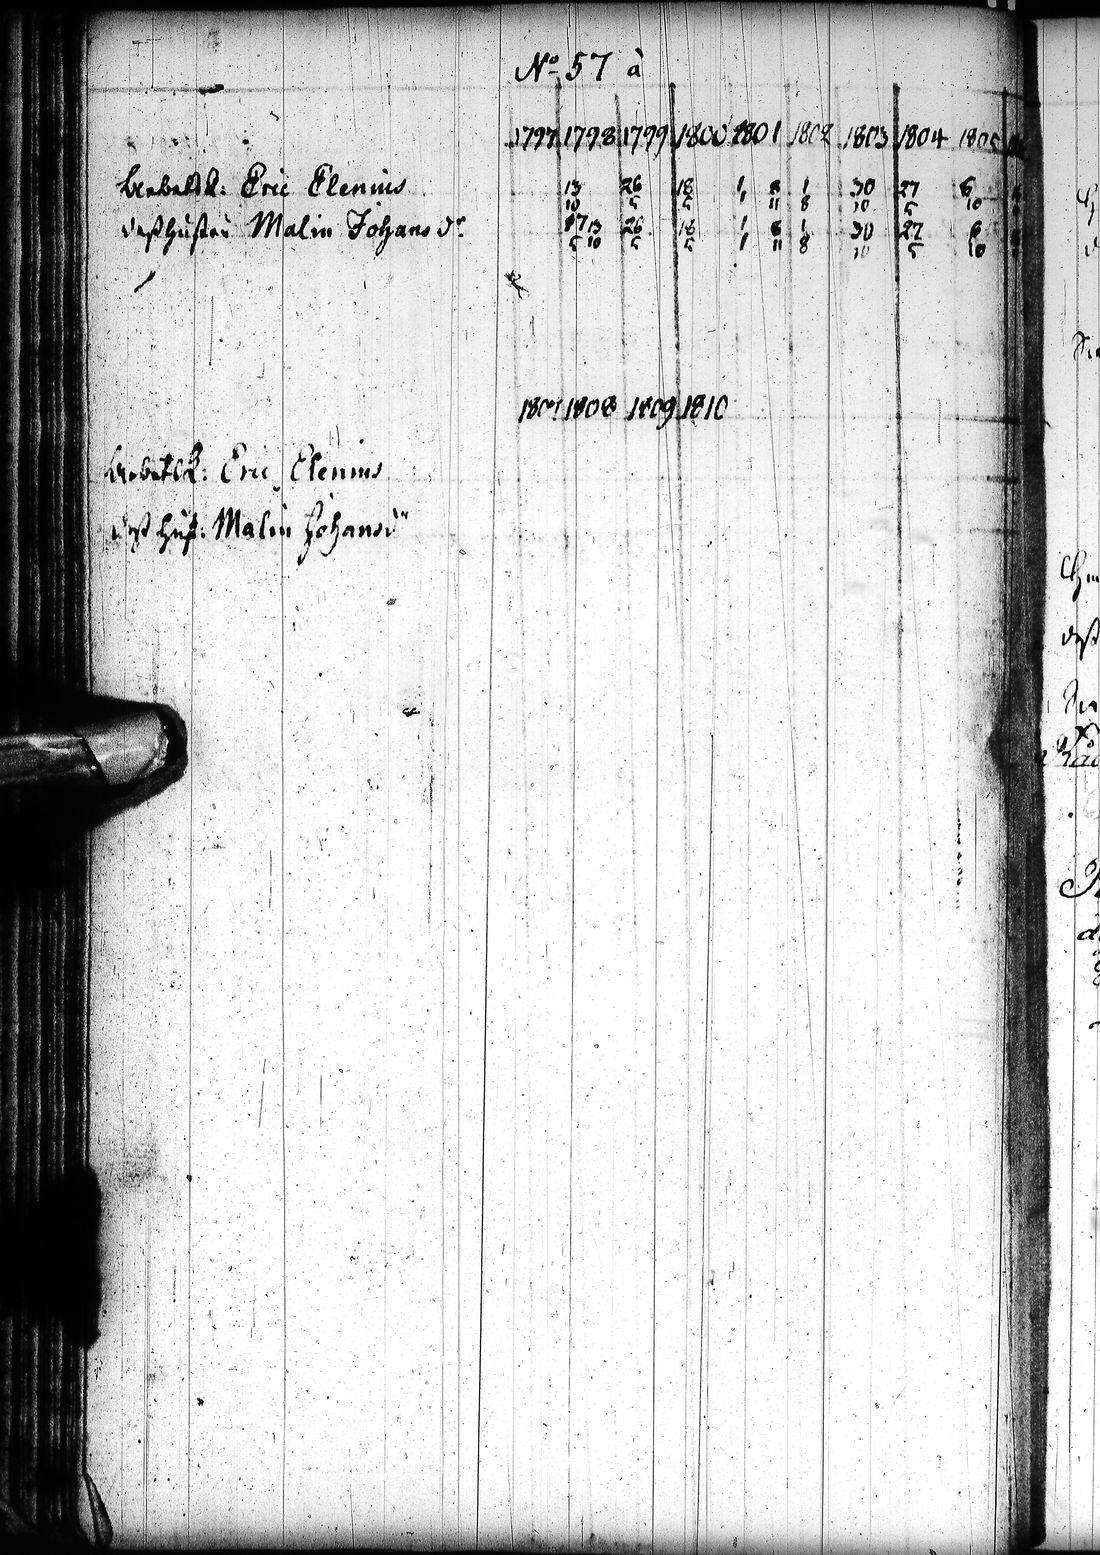 No 57 à
1797 1798 1799 1800 1801 1802 1803 1804 1805
Arbetsk: Eric Elenius 13/10 26/5 18/5 1/1 8/11 1/8 30/10 27/5 6/10
dess hustru Malin Johansdr 17/5 13/10 26/5 18/5 1/1 8/11 1/8 30/10 27/5 6/10
1807 1808 1809 1810
Arbetsk: Eric Elenius
dess hust: Malin Johansdr